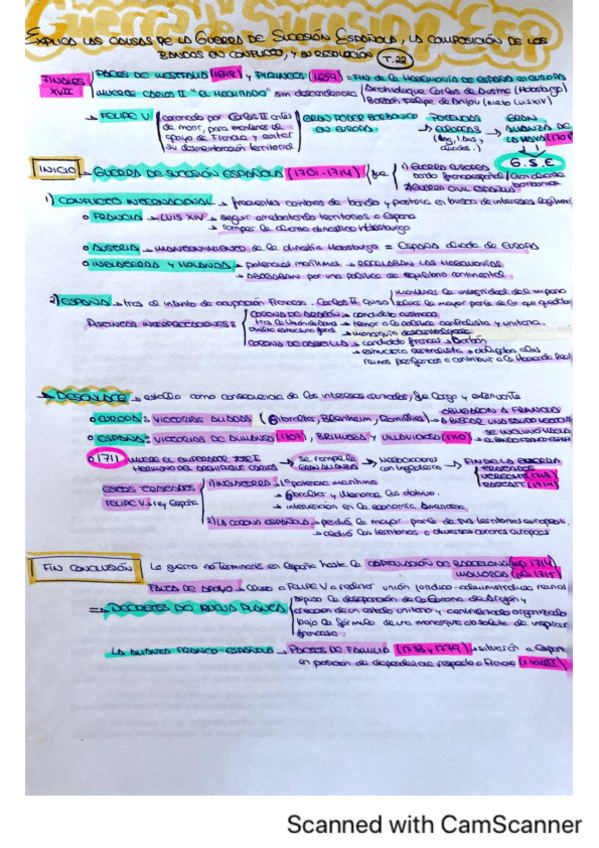 Guerra de Sucesión Esp
EXPLICA LAS CAUSAS DE LA GUERRA DE SUCESIÓN ESPAÑOLA, LA COMPOSICIÓN DE LOS
BANDOS EN CONFLICTO, Y SU RESOLUCIÓN (T.22)
FINALES XVII
PACES DE WESTFALIA (1648) Y PIRINEOS (1659) = FIN DE LA HEGEMONÍA DE ESPAÑA EN EUROPA
MUERE CARLOS II "EL HECHIZADO" sin descendencia
Archiduque Carlos de Austria (Habsburgo)
Borbón Felipe de Anjou (nieto Luis XIV)
→ FELIPE V
coronado por Carlos II antes
de morir, para mantener el
apoyo de Francia y evitar
su desmembración territorial
GRAN PODER BORBÓNICO
EN EUROPA
POTENCIAS
EUROPEAS
GRAN
ALIANZA DE
LA HAYA (1701)
G.S.E
INICIO → GUERRA DE SUCESIÓN ESPAÑOLA (1701-1714) fue
1) GUERRA EUROPEA
2) GUERRA CIVIL ESPAÑOLA
1) CONFLICTO INTERNACIONAL → frecuentes cambios de bando y postura en busca de intereses legítimos
FRANCIA → LUIS XIV → seguir arrebatando territorios a España
→ romper la alianza dinástica Habsburgo
AUSTRIA → MANTENIMIENTO de la dinastía Habsburgo = España aliada de Europa
INGLATERRA Y HOLANDA → potencias marítimas → RECELABAN LAS HEGEMONÍAS
→ ABOGABAN por una política de equilibrio continental
2) ESPAÑA → tras el intento de ocupación Francesa. Carlos II quiso
mantener la integridad del imperio
salvar la mayor parte de lo que quedaba
DISTINTAS INTERPRETACIONES:
CORONA DE ARAGÓN → candidato austriaco
→ temor a la política centralista y unitaria
→ monarquía descentralizada
CORONA DE CASTILLA → candidato francés → Borbón
→ estructura centralista → obligaba a los
reinos periféricos a contribuir a la Hacienda Real
→ DESENLACE → estalló como consecuencia de los intereses cruzados, fue largo y extenuante
EUROPA: VICTORIAS ALIADAS (Gibraltar, Blenheim, Ramillies) → OBLIGARON A FRANCIA
A BUSCAR UNA SALIDA NEGOCIADA
ESPAÑA: VICTORIAS DE ALMANSA (1707), BRIHUEGA Y VILLAVICIOSA (1710)
1711 MUERE EL EMPERADOR JOSÉ I
HERMANO DEL ARCHIDUQUE CARLOS
→ se rompe la
GRAN ALIANZA
→ NEGOCIACIONES
con Inglaterra
→ FIN DE LA GUERRA
TRATADOS
UTRECHT (1713)
RASTATT (1714)
FELIPE V → rey España
1) INGLATERRA: 1ª potencia marítima
→ Gibraltar y Menorca las obtuvo.
→ intervención en la economía Americana
2) LA CORONA ESPAÑOLA → perdió la mayor parte de sus territorios europeos.
→ cedió los territorios a diversas coronas europeas
FIN CONCLUSIÓN
La guerra no terminaría en España hasta la CAPITULACIÓN DE BARCELONA (sep. 1714)
MALLORCA (jul. 1715)
FALTA DE APOYO → llevó a FELIPE V a realizar unión jurídico-administrativa reinos
⇒ DECRETOS DE NUEVA PLANTA
supuso la desaparición de la Corona de Aragón y
creación de un estado unitario y centralizado organizado
bajo la fórmula de una monarquía absoluta de inspiración
francesa
LA ALIANZA FRANCO-ESPAÑOLA → PACTOS DE FAMILIA (1733 y 1779) → situarán a España
en posición de dependencia respecto a Francia (s. XVIII)
Scanned with CamScanner